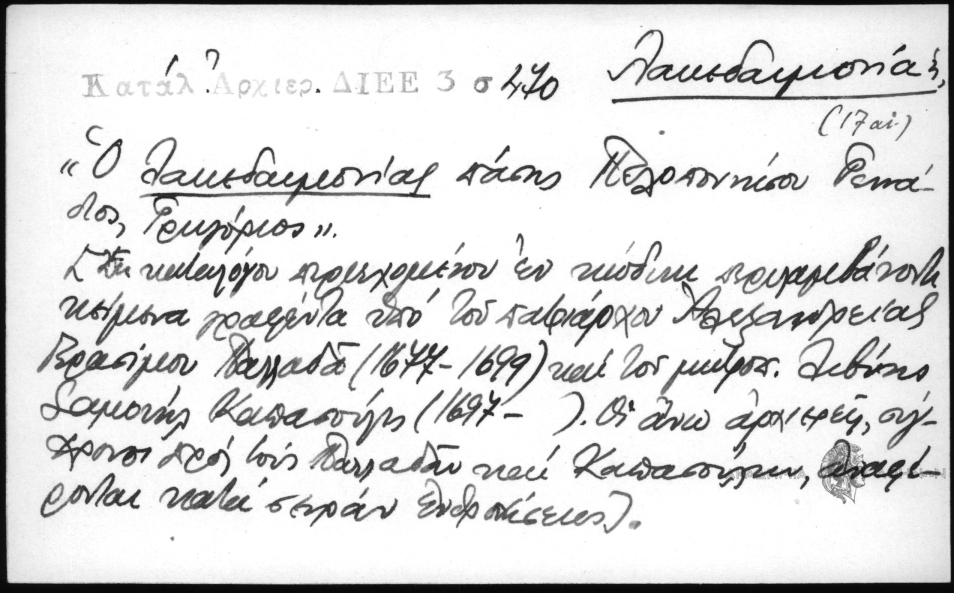 Κατάλ. Ἀρχιερ. ΔΙΕΕ 3 σ 470
Λακεδαιμονίας,
(17 αἰ.)
«Ὁ Λακεδαιμονίας πάσης Πελοποννήσου Γενά-
διος, Γρηγόριος».
[Ἐκ καταλόγου περιεχομένου ἐν κώδικι περιλαμβάνοντι
κείμενα γραφέντα ὑπό τοῦ πατριάρχου Ἀλεξανδρείας
Γερασίμου Παλλαδᾶ (1677-1699) καί τοῦ μητροπ. Λιβύης
Σαμουήλ Καπασούλη (1697- ). Οἱ ἄνω ἀρχιερεῖς, σύγ-
χρονοι πρός τούς Παλλαδᾶν καί Καπασούλην, ἀναφέ-
ρονται κατά σειράν ἐνθρονίσεως].